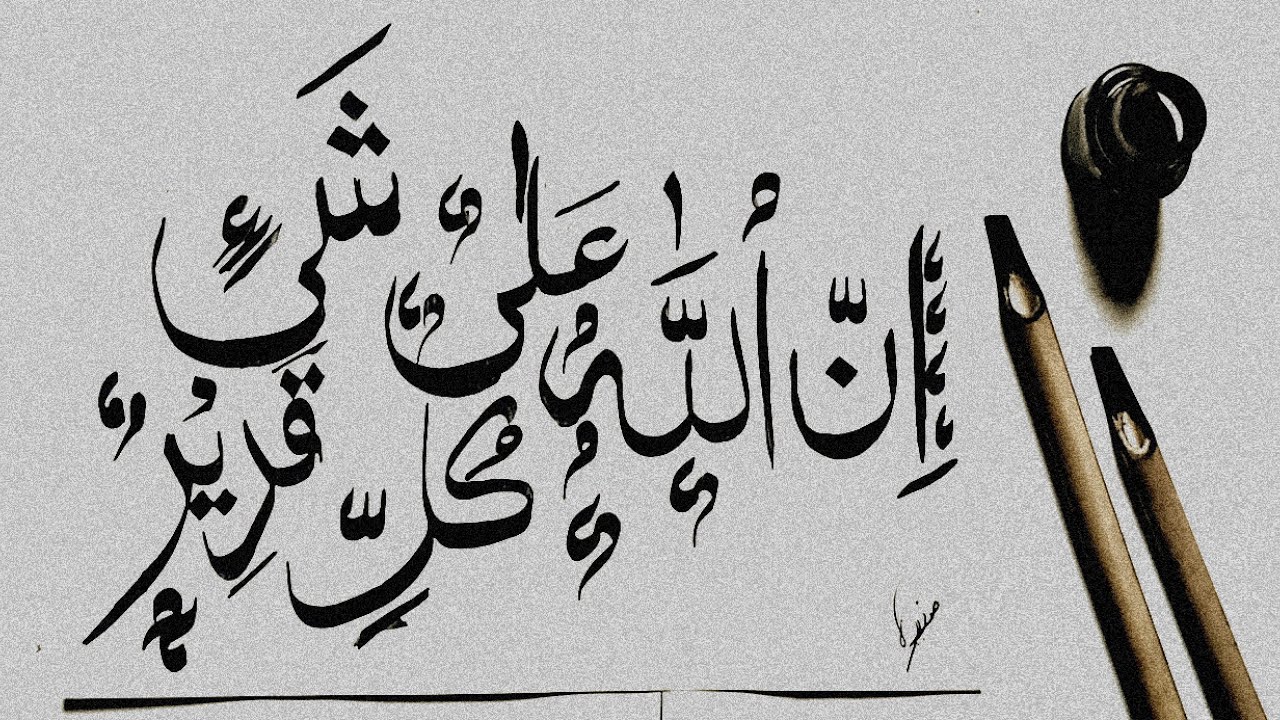 إِنَّ اللَّهَ عَلَىٰ كُلِّ شَيْءٍ قَدِيرٌ